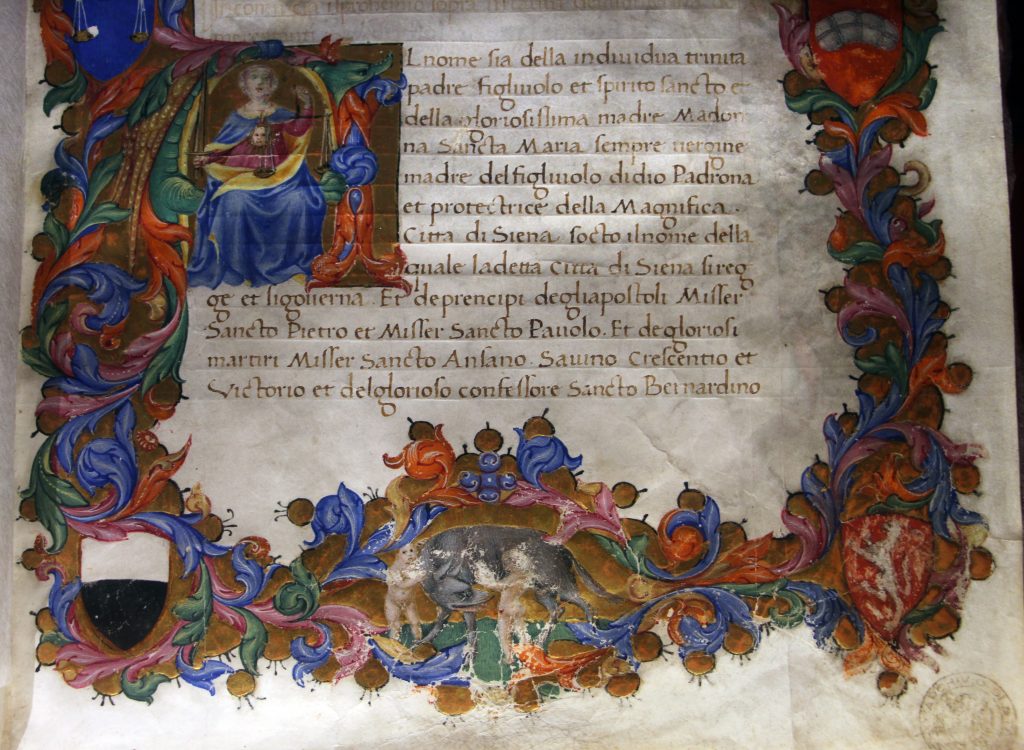 Lnome sia della individua trinita
padre figliuolo et spirito sancto et
della gloriosissima madre Madon
na Sancta Maria sempre uergine
madre delfigliuolo didio Padrona
et protectrice della Magnifica.
Citta di Siena socto ilnome della
quale ladetta Citta di Siena sireg
ge et sigouerna. Et deprencipi degliapostoli Misser
Sancto Pietro et Misser Sancto Pauolo. Et degloriosi
martiri Misser Sancto Ansano. Sauino Crescentio et
Victorio et delglorioso confessore Sancto Bernardino